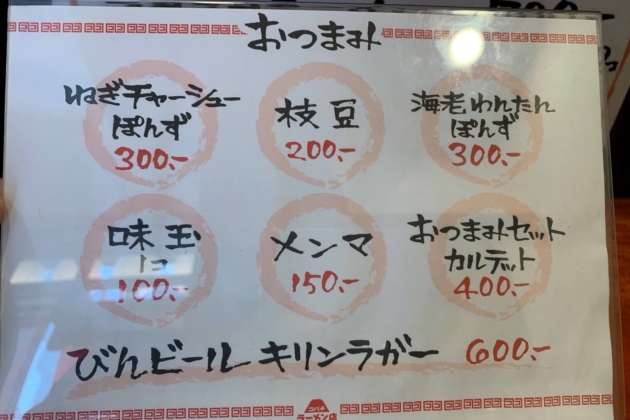 おつまみ
ねぎチャーシュー
ぽんず
300.-
枝豆
200.-
海老わんたん
ぽんず
300.-
味玉
1コ
100.-
メンマ
150.-
おつまみセット
カルテット
400.-
びんビール キリンラガー 600.-
ラーメン店